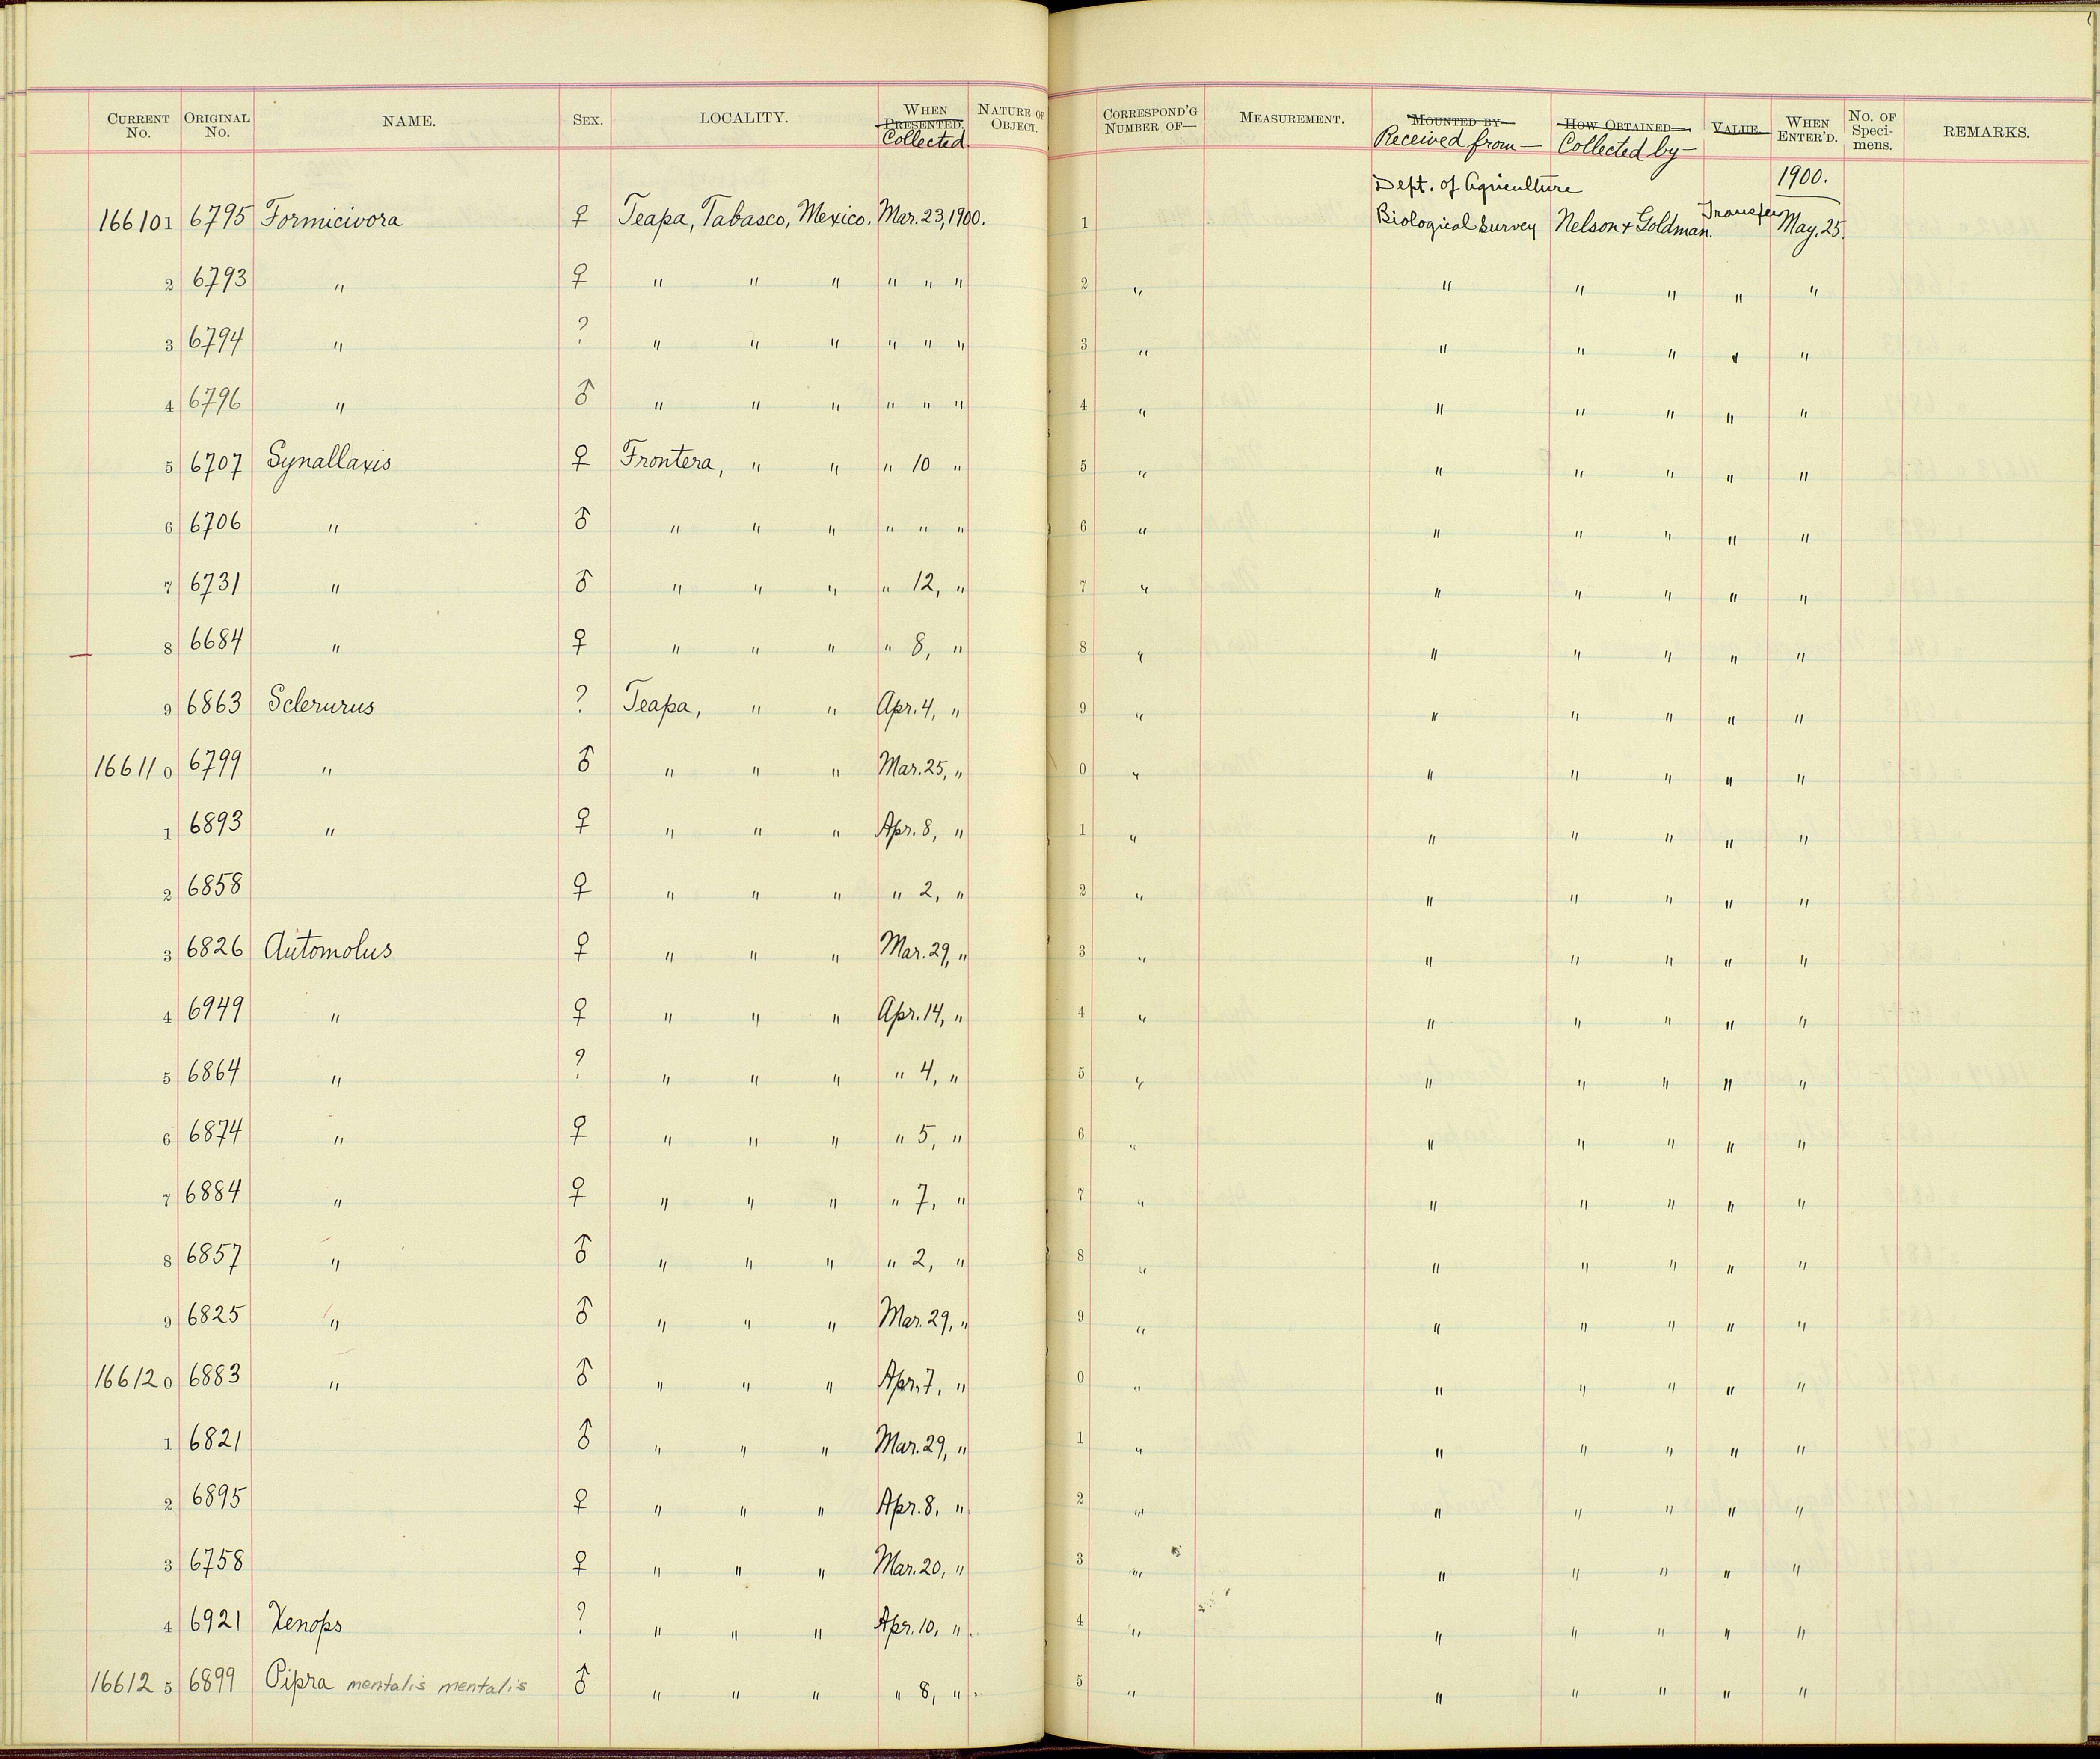 CURRENT No. ORIGINAL No. NAME. SEX. LOCALITY. WHEN PRESENTED. Collected. NATURE OF OBJECT. CORRESPOND'G NUMBER OF— MEASUREMENT. MOUNTED BY— Received from— HOW OBTAINED. Collected by— VALUE. WHEN ENTER'D. No. OF Specimens. REMARKS.
Dept. of Agriculture 1900.
166101 6795 Formicivora ♀ Teapa, Tabasco, Mexico. Mar. 23, 1900. 1 Biological Survey Nelson & Goldman. Transfer May, 25.
2 6793 " ♀ " " " " " " 2 " " " " " "
3 6794 " ? " " " " " " 3 " " " " " "
4 6796 " ♂ " " " " " " 4 " " " " " "
5 6707 Synallaxis ♀ Frontera, " " " 10 " 5 " " " " " "
6 6706 " ♂ " " " " " " 6 " " " " " "
7 6731 " ♂ " " " " 12, " 7 " " " " " "
8 6684 " ♀ " " " " 8, " 8 " " " " " "
9 6863 Sclerurus ? Teapa, " " Apr. 4, " 9 " " " " " "
166110 6799 " ♂ " " " Mar. 25, " 0 " " " " " "
1 6893 " ♀ " " " Apr. 8, " 1 " " " " " "
2 6858 ♀ " " " " 2, " 2 " " " " " "
3 6826 Automolus ♀ " " " Mar. 29, " 3 " " " " " "
4 6949 " ♀ " " " Apr. 14, " 4 " " " " " "
5 6864 " ? " " " " 4, " 5 " " " " " "
6 6874 " ♀ " " " " 5, " 6 " " " " " "
7 6884 " ♀ " " " " 7, " 7 " " " " " "
8 6857 " ♂ " " " " 2, " 8 " " " " " "
9 6825 " ♂ " " " Mar. 29, " 9 " " " " " "
166120 6883 " ♂ " " " Apr. 7, " 0 " " " " " "
1 6821 ♂ " " " Mar. 29, " 1 " " " " " "
2 6895 ♀ " " " Apr. 8, " 2 " " " " " "
3 6758 ♀ " " " Mar. 20, " 3 " " " " " "
4 6921 Xenops ? " " " Apr. 10, " 4 " " " " " "
166125 6899 Pipra mentalis mentalis ♂ " " " " 8, " 5 " " " " " "